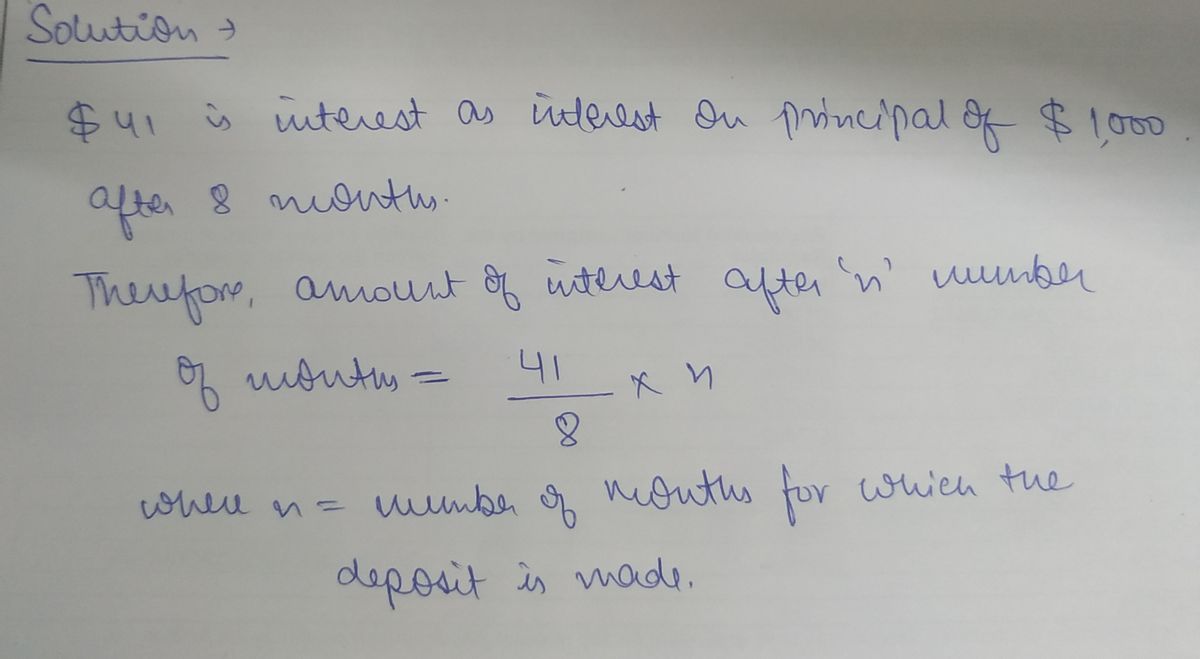 Solution →
$41 is interest as interest on principal of $1,000.
after 8 months.
Therefore, amount of interest after 'n' number
of months = 41/8 × n
where n = number of months for which the
deposit is made.